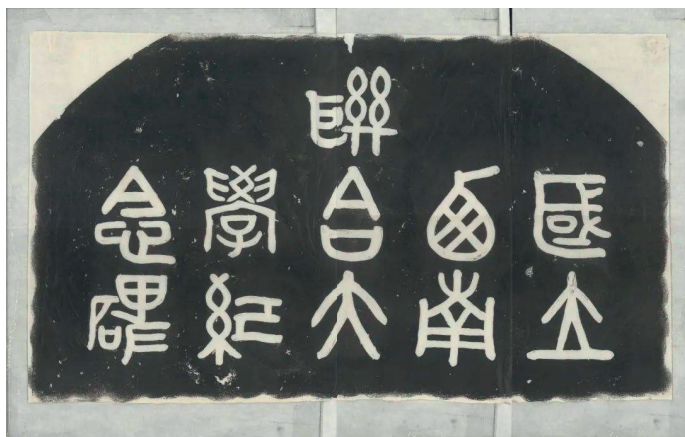 國立
西南
聯合大
學紀
念碑